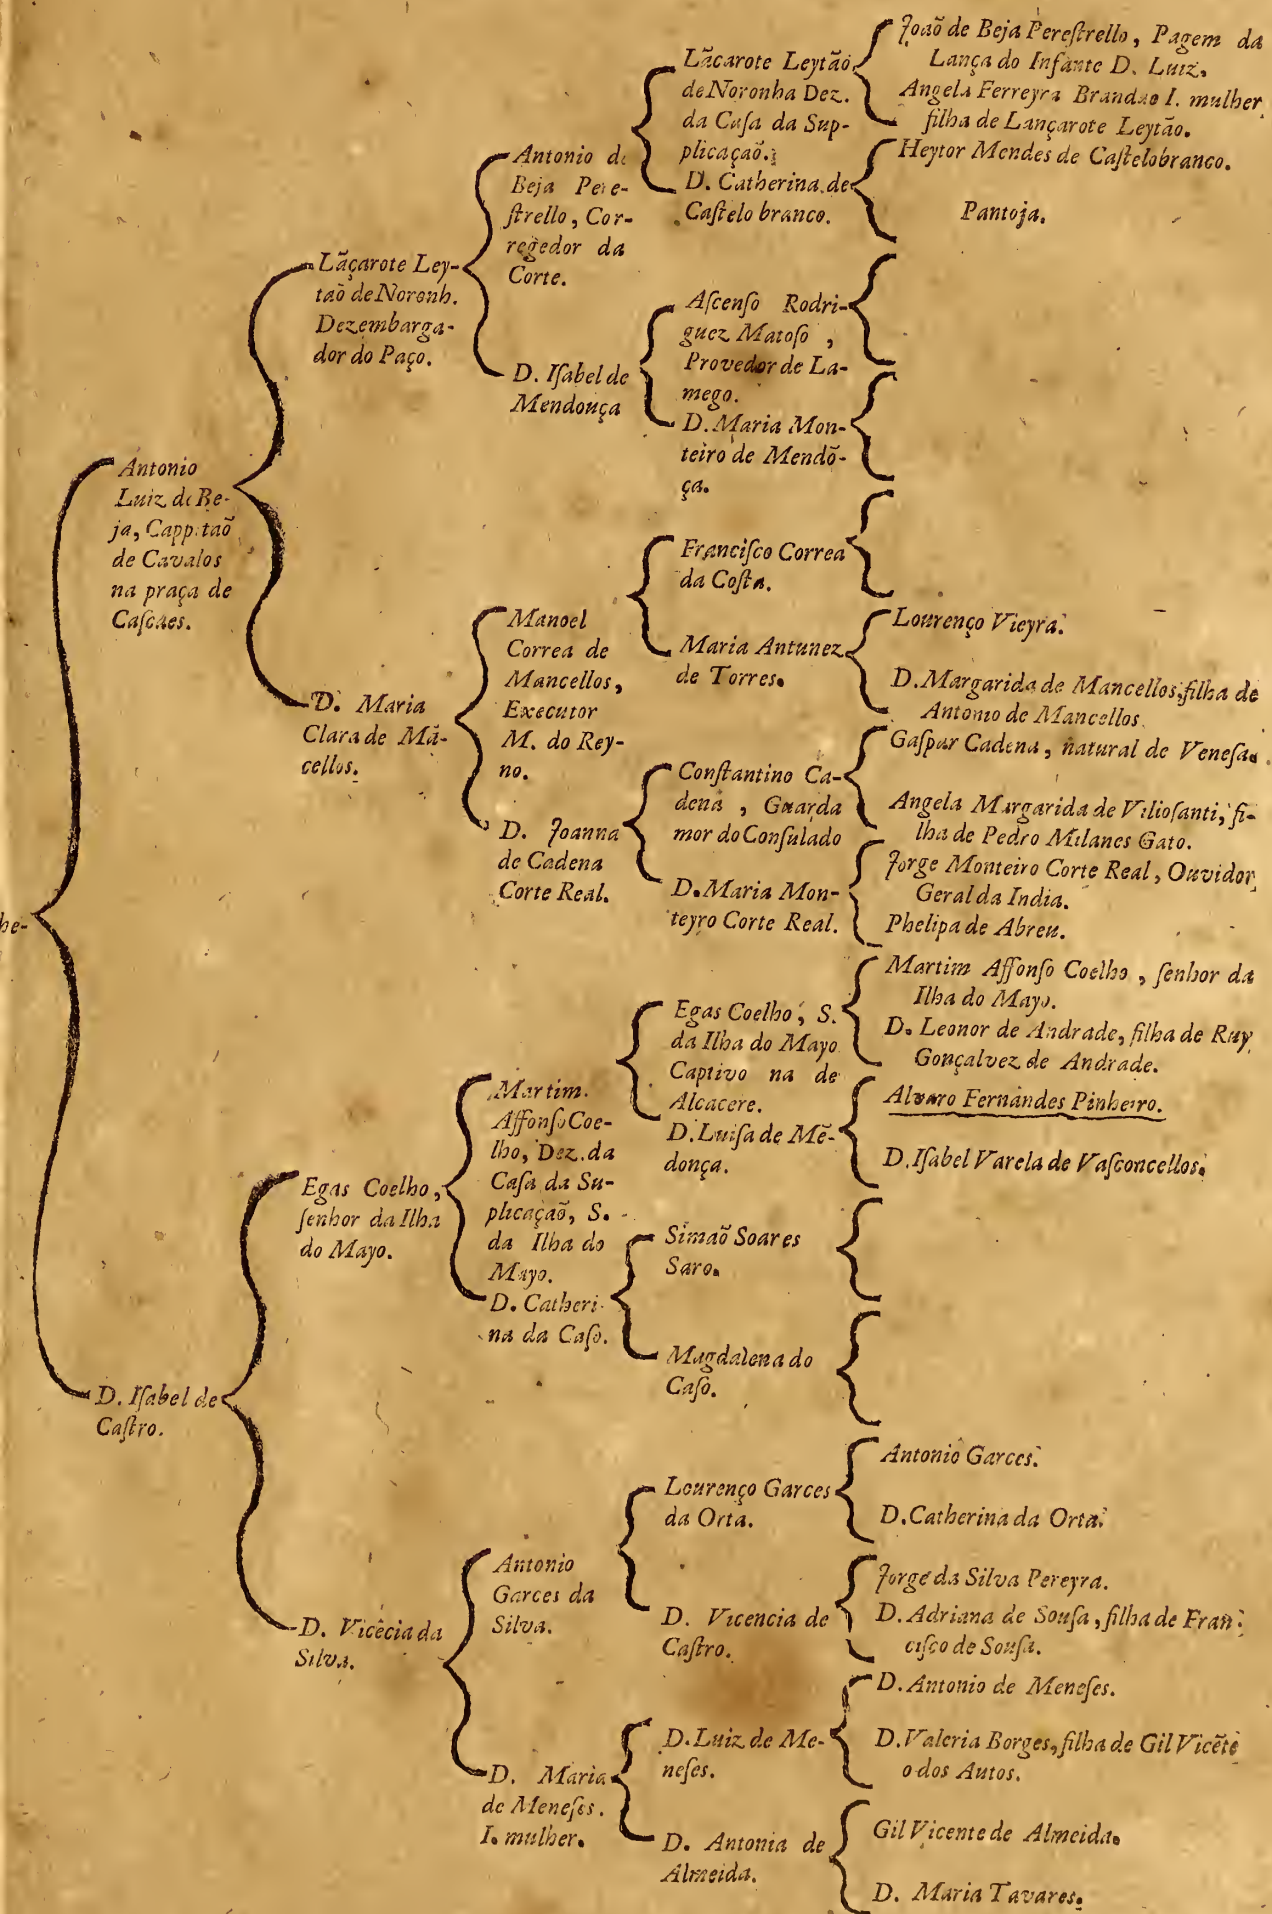 he-
Antonio
Luiz de Be-
ja, Cappitaõ
de Cavalos
na praça de
Caſcaes.
D. Iſabel de
Caſtro.
Lãçarote Ley-
taõ de Noronh.
Dezembarga-
dor do Paço.
D. Maria
Clara de Mã-
cellos.
Egas Coelho,
ſenhor da Ilha
do Mayo.
D. Vicẽcia da
Silva.
Antonio de
Beja Pere-
ſtrello, Cor-
regedor da
Corte.
D. Iſabel de
Mendouça
Manoel
Correa de
Mancellos,
Executor
M. do Rey-
no.
D. Joanna
de Cadena
Corte Real.
Martim
Affonſo Coe-
lho, Dez. da
Caſa da Su-
plicaçaõ, S.
da Ilha do
Mayo.
D. Catheri-
na da Caſo.
Antonio
Garces da
Silva.
D. Maria
de Meneſes.
I. mulher.
Lãcarote Leytaõ
de Noronha Dez.
da Caſa da Sup-
plicaçaõ.
D. Catherina de
Caſtelo branco.
Aſcenſo Rodri-
guez Matoſo ,
Provedor de La-
mego.
D. Maria Mon-
teiro de Mendõ-
ça.
Franciſco Correa
da Coſta.
Maria Antunez
de Torres.
Conſtantino Ca-
dena , Guarda
mor do Conſulado
D. Maria Mon-
teyro Corte Real.
Egas Coelho, S.
da Ilha do Mayo
Captivo na de
Alcacere.
D. Luiſa de Mẽ-
donça.
Simaõ Soares
Saro.
Magdalena do
Caſo.
Lourenço Garces
da Orta.
D. Vicencia de
Caſtro.
D. Luiz de Me-
neſes.
D. Antonia de
Almeida.
Joaõ de Beja Pereſtrello, Pagem da
Lança do Infante D. Luiz.
Angela Ferreyra Brandao I. mulher
filha de Lançarote Leytão.
Heytor Mendes de Caſtelobranco.
Pantoja.
Lourenço Vieyra.
D. Margarida de Mancellos, filha de
Antonio de Mancellos.
Gaſpar Cadena, natural de Veneſa.
Angela Margarida de Vilioſanti, fi-
lha de Pedro Milanes Gato.
Jorge Monteiro Corte Real, Ouvidor
Geral da India.
Phelipa de Abreu.
Martim Affonſo Coelho , ſenhor da
Ilha do Mayo.
D. Leonor de Andrade, filha de Ruy
Gonçalvez de Andrade.
Alvaro Fernandes Pinheiro.
D. Iſabel Varela de Vaſconcellos.
Antonio Garces.
D. Catherina da Orta.
Jorge da Silva Pereyra.
D. Adriana de Souſa, filha de Fran-
ciſco de Souſa.
D. Antonio de Meneſes.
D. Valeria Borges, filha de Gil Vicẽte
o dos Autos.
Gil Vicente de Almeida.
D. Maria Tavares.